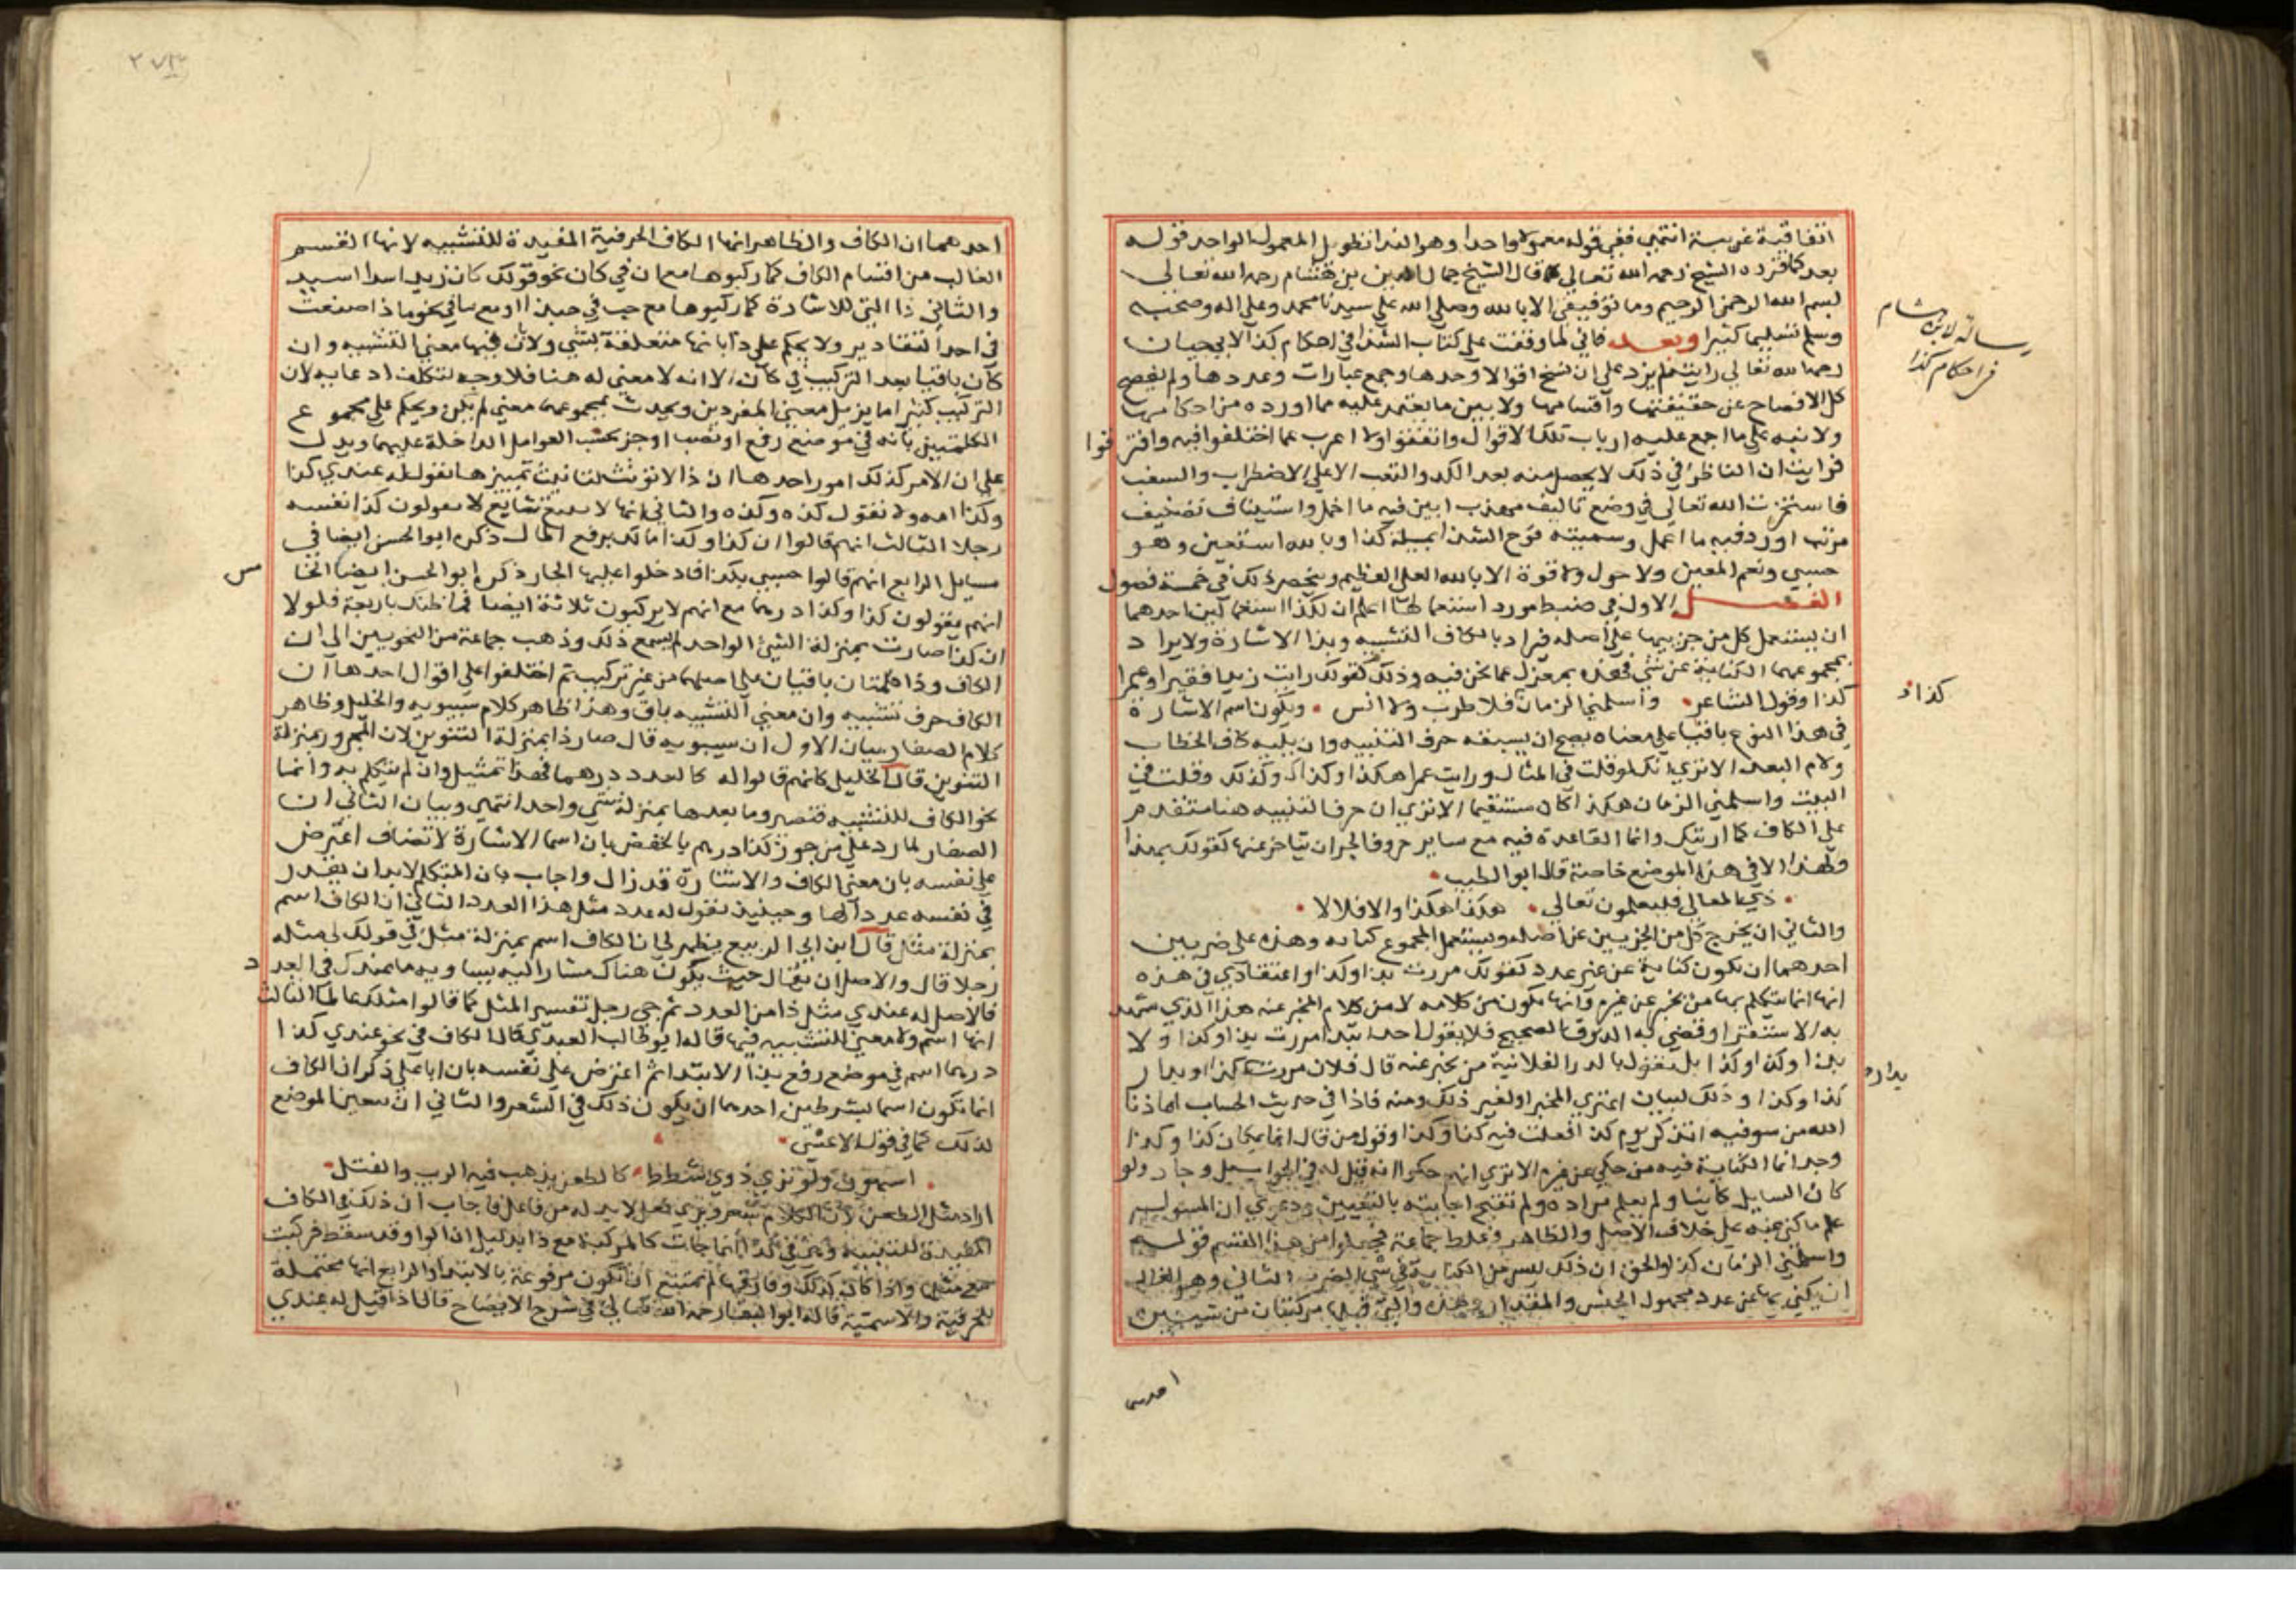 اتفاقية غريبة انتهى ففي قوله معمولا واحدا وهو الندا نظويل المعمول الواحد قوله
بعد كما قرره الشيخ رحمه الله تعالى قال الشيخ جمال الدين بن هشام رحمه الله تعالى
بسم الله الرحمن الرحيم وما توفيقي الا بالله وصلى الله على سيدنا محمد وعلى اله وصحبه
وسلم تسليما كثيرا وبعد فاني لما وقفت على كتاب الشذا في احكام كذا لابي حيان
رحمه الله تعالى رايته لم يزد على ان نسخ اقوالا وحدها وجمع عبارات وعددها ولم يفصح
كل الافصاح عن حقيقتها واقسامها ولا بين ما يعتمد عليه مما اورده من احكامها
ولا نبه على ما اجمع عليه ارباب تلك الاقوال واتفقوا ولا اعرب عما اختلفوا فيه وافترقوا
فرايت ان الناظر في ذلك لا يحصل منه بعد الكد والتعب الا على الاضطراب والشغب
فاستخرت الله تعالى في وضع تاليف مهذب ابين فيه ما اجمل واستيناف تصنيف
مرتب اورد فيه ما اهمل وسميته فوح الشذا بمسيلة كذا وبالله استعين وهو
حسبي ونعم المعين ولا حول ولا قوة الا بالله العلي العظيم وينحصر ذلك في خمسة فصول
الفصل الاول في ضبط موارد استعمالها اعلم ان لكذا استعمالين احدهما
ان يستعمل كل من جزييها على اصله فيراد بالكاف التشبيه وبذا الاشارة ولا يراد
بمجموعهما الكناية عن شي فهذه بمعزل عما نحن فيه وذلك كقولك رايت زيدا فقيرا وعمرا
كذا وقول الشاعر واسلمني الزمان فلا طرب ولا انس ويكون اسم الاشارة
في هذا النوع باقيا على معناه يصح ان يسبقه حرف التنبيه وان يليه كاف الخطاب
ولام البعد الا ترى انك لو قلت في المثال ورايت عمرا هكذا وكذاك وكذلك وقلت في
البيت واسلمني الزمان هكذا لكان مستقيما الا ترى ان حرف التنبيه هنا متقدم
على الكاف كما اريتك وانما القاعدة فيه مع ساير حروف الجر ان يتاخر عنها كقولك بهذا
ولهذا الا في هذا الموضع خاصة قال ابو الطيب
ذي المعالي فليعلون تعالى هكذا هكذا والا فلا لا
والثاني ان يخرج كل من الجزيين عن اصله ويستعمل المجموع كناية وهذه على ضربين
احدهما ان تكون كناية عن غير عدد كقولك مررت بدار كذا واعتقادي في هذه
انها انما يتكلم بها من يخبر عن غيره وانها تكون من كلامه لا من كلام المخبر عنه هذا الذي شهد
به الاستقرا وقضى به الذوق الصحيح فلا يقول احد ابتدا مررت بدار كذا ولا
بدار كذا وكذا بل تقول بالدار الفلانية من يخبر عنه قال فلان مررت بدار كذا او بدار
كذا وكذا وذلك لسان اعتري المخبر او لغير ذلك ومنه فاذا في حديث الحساب اما ذنا
الله من سوقيه اتذكر يوم كذا فعلت فيه كذا وكذا وقول من قال اما بمكان كذا وكذا
وجد انما الكناية فيه من حكي عن غيره الا ترى انهم حكوا انه قيل له في الجواب بلى وجاد ولو
كان السايل كانيا ولم يعلم مراده ولم تقبح اجابته بالتعيين ودعوى ان المسول
علم ما كني عنه على خلاف الاصل والظاهر وغلط جماعة فجعلوا من هذا القسم قوله
واسلمني الزمان كذا والحق ان ذلك ليس من الكناية في شي الضرب الثاني وهو الغالب
ان يكني بها عن عدد مجهول الجنس والمقدار وهذه والتي قبلها مركبتان من شيئين
احدهما
رسالة لابن هشام
في احكام كذا
كذاك
بدار
٢٧٣
احدهما ان الكاف والظاهر انها الكاف الحرفية المفيدة للتشبيه لانها القسم
الغالب من اقسام الكاف كما ركبوها مع ان في كان نحو قولك كان زيدا اسد
والثاني ذا التي للاشارة كما ركبوها مع حب في حبذا او مع ما في نحو ماذا صنعت
في احد التقادير ولا يحكم على ذا بانها متعلقة بشي ولا ان فيها معنى التشبيه وان
كان باقيا بعد التركيب في كان لانه لا معنى له هنا فلا وجه لتكلف ادعايه لان
التركيب كثيرا ما يزيل معنى المفردين ويحدث بمجموعهما معنى لم يكن ويحكم على مجموع
الكلمتين بانه في موضع رفع او نصب او جر بحسب العوامل الداخلة عليهما ويدل
على ان الامر كذلك امور احدها ان ذا لا تؤنث لتانيث تمييزها تقول له عندي كذا
وكذا امة ولا تقول كذه وكذه والثاني انها لا تتبع بتابع لا يقولون كذا نفسه
رجلا الثالث انهم قالوا ان كذا وكذا مالك برفع المال ذكره ابو الحسن ايضا في
مسايل الرابع انهم قالوا حسبي بكذا فادخلوا عليها الجار ذكره ابو الحسن ايضا الخامس
انهم يقولون كذا وكذا درهما مع انهم لا يركبون ثلاثة ايضا فما ظنك باربعة فلولا
ان كذا صارت بمنزلة الشي الواحد لم يسمع ذلك وذهب جماعة من النحويين الى ان
الكاف وذا كلمتان باقيتان على اصلهما من غير تركيب ثم اختلفوا على اقوال احدها ان
الكاف حرف تشبيه وان معنى التشبيه باق وهذا ظاهر كلام سيبويه والخليل وظاهر
كلام الصفار بيان الاول ان سيبويه قال صار ذا بمنزلة التنوين لان المجرور بمنزلة
التنوين قال الخليل كانهم قالوا له كالعدد درهما فهذا تمثيل وان لم يتكلم به وانما
نحو الكاف للتشبيه فتصير وما بعدها بمنزلة شي واحد انتهى وبيان الثاني ان
الصفار لما رد على من جوز كذا درهم بالخفض بان اسما الاشارة لا تضاف اعترض
على نفسه بان معنى الكاف والاشارة قد زال واجاب بان المتكلم لا بد ان يقدر
في نفسه عددا لها وحينئذ يقول له عدد مثل هذا العدد الثاني ان الكاف اسم
بمنزلة مثل قال ابن ابي الربيع يظهر لي ان الكاف اسم بمنزلة مثل في قولك لي مثله
رجلا قال والاصل ان يقال حيث يكون هناك مشار اليه يساويه ما عندك في العدد
فالاصل له عندي مثل ذا من العدد ثم جي رجل تفسير المثل كما قالوا مثلك عالما الثالث
انها اسم ولا معنى للتشبيه فيها قاله ابو طالب العبدي قال الكاف في نحو عندي كذا
درهما اسم في موضع رفع بالابتدا ثم اعترض على نفسه بان ابا علي ذكر ان الكاف
انما تكون اسما بشرطين احدهما ان يكون ذلك في الشعر والثاني ان يتعين الموضع
لذلك كما في قول الاعشى
اتنتهون ولن ترى ذوي شطط كالطعن يذهب فيه الزيت والفتل
اراد مثل الطعن لان الكلام شعر وترى فعل لا بد له من فاعل فاجاب ان ذلك في الكاف
المفيدة للتشبيه وهي في كذا انما جات كالمركبة مع ذا بدليل ان الواو قد سقط فركبت
مع مثلها واذا كان كذلك وفارقها لم يمتنع ان تكون مرفوعة بالابتدا والرابع انها محتملة
للحرفية والاسمية قاله ابو البقا رحمه الله تعالى في شرح الايضاح قال اذا قيل له عندي